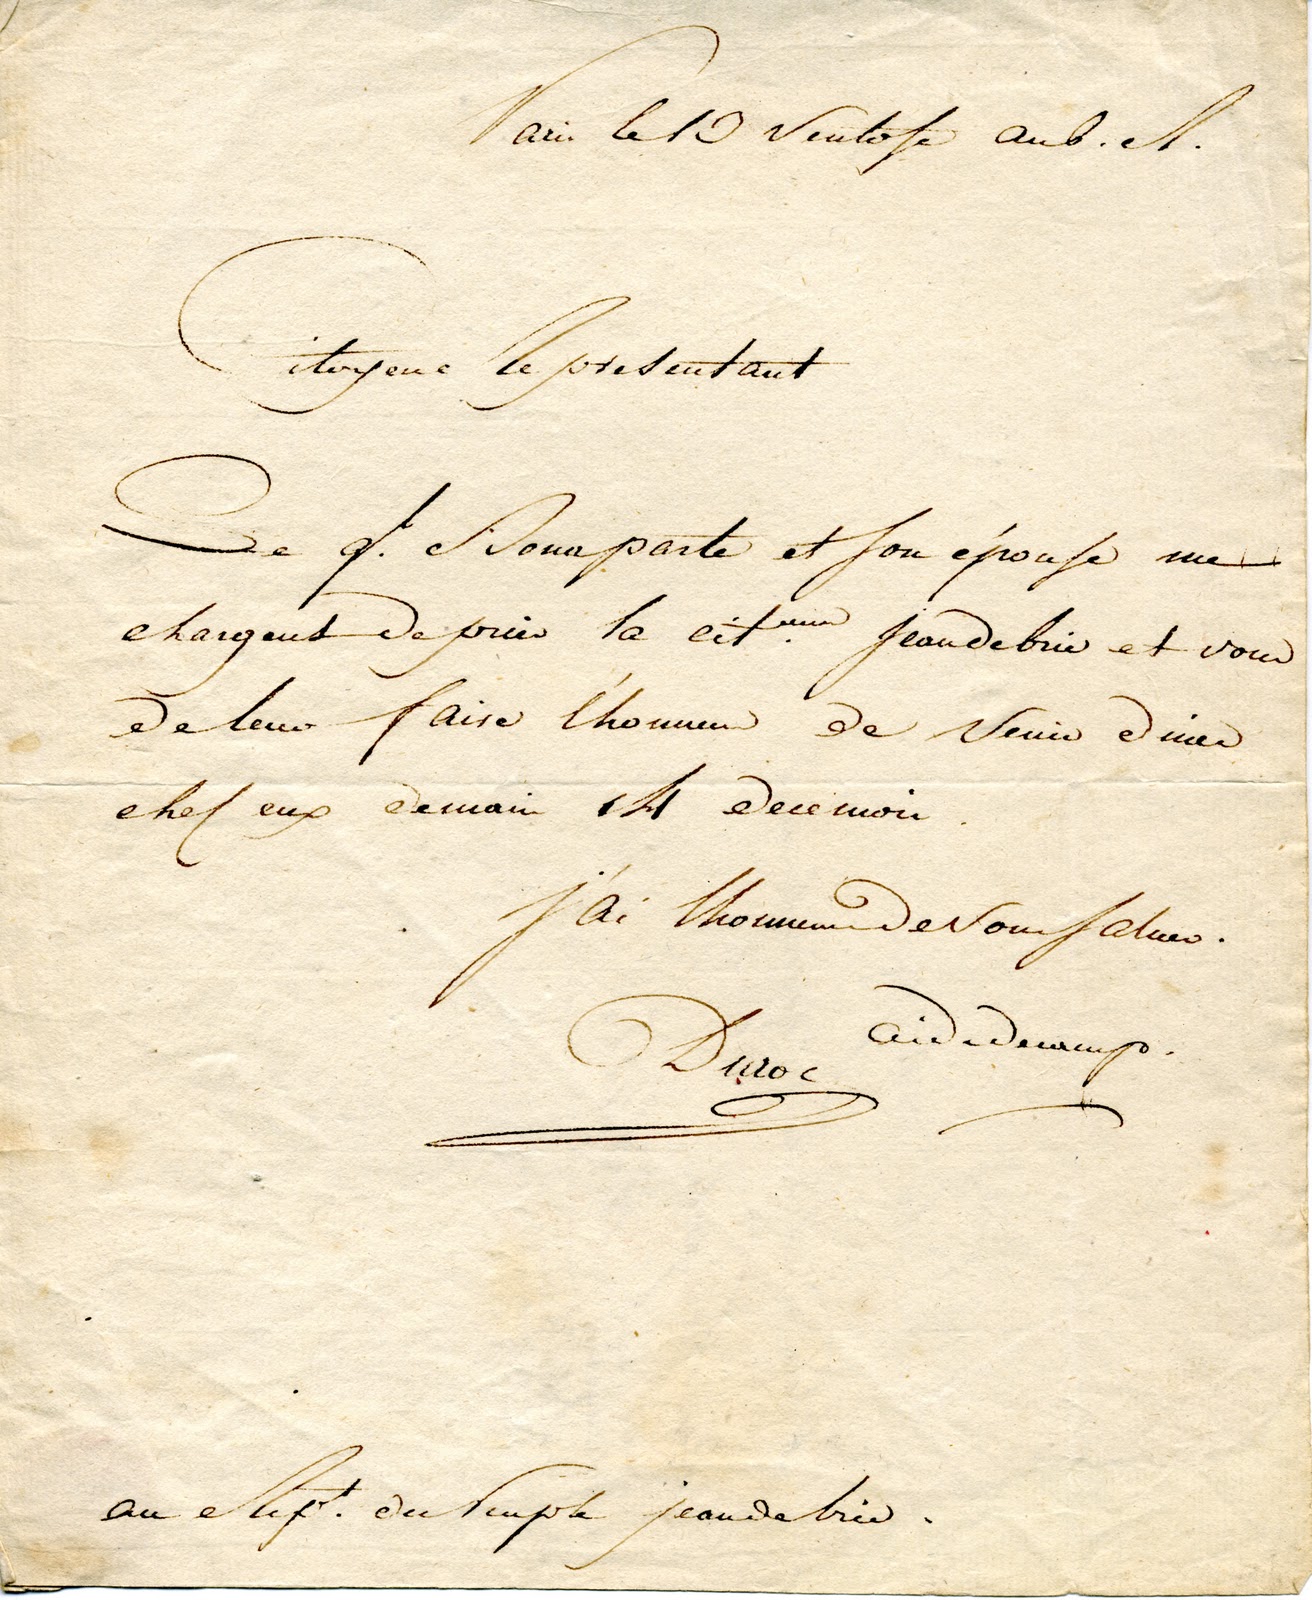 Paris le 13 Ventose an 6. R.
Citoyen Representant
Le gl. Bonaparte et son épouse me
chargent de prier la cit.enne jeandebrie et vous
de leur faire l'honneur de venir diner
chez eux demain 14 de ce mois.
j'ai l'honneur de vous saluer.
aide de camp.
Duroc
au Rept. du Peuple jeandebrie.